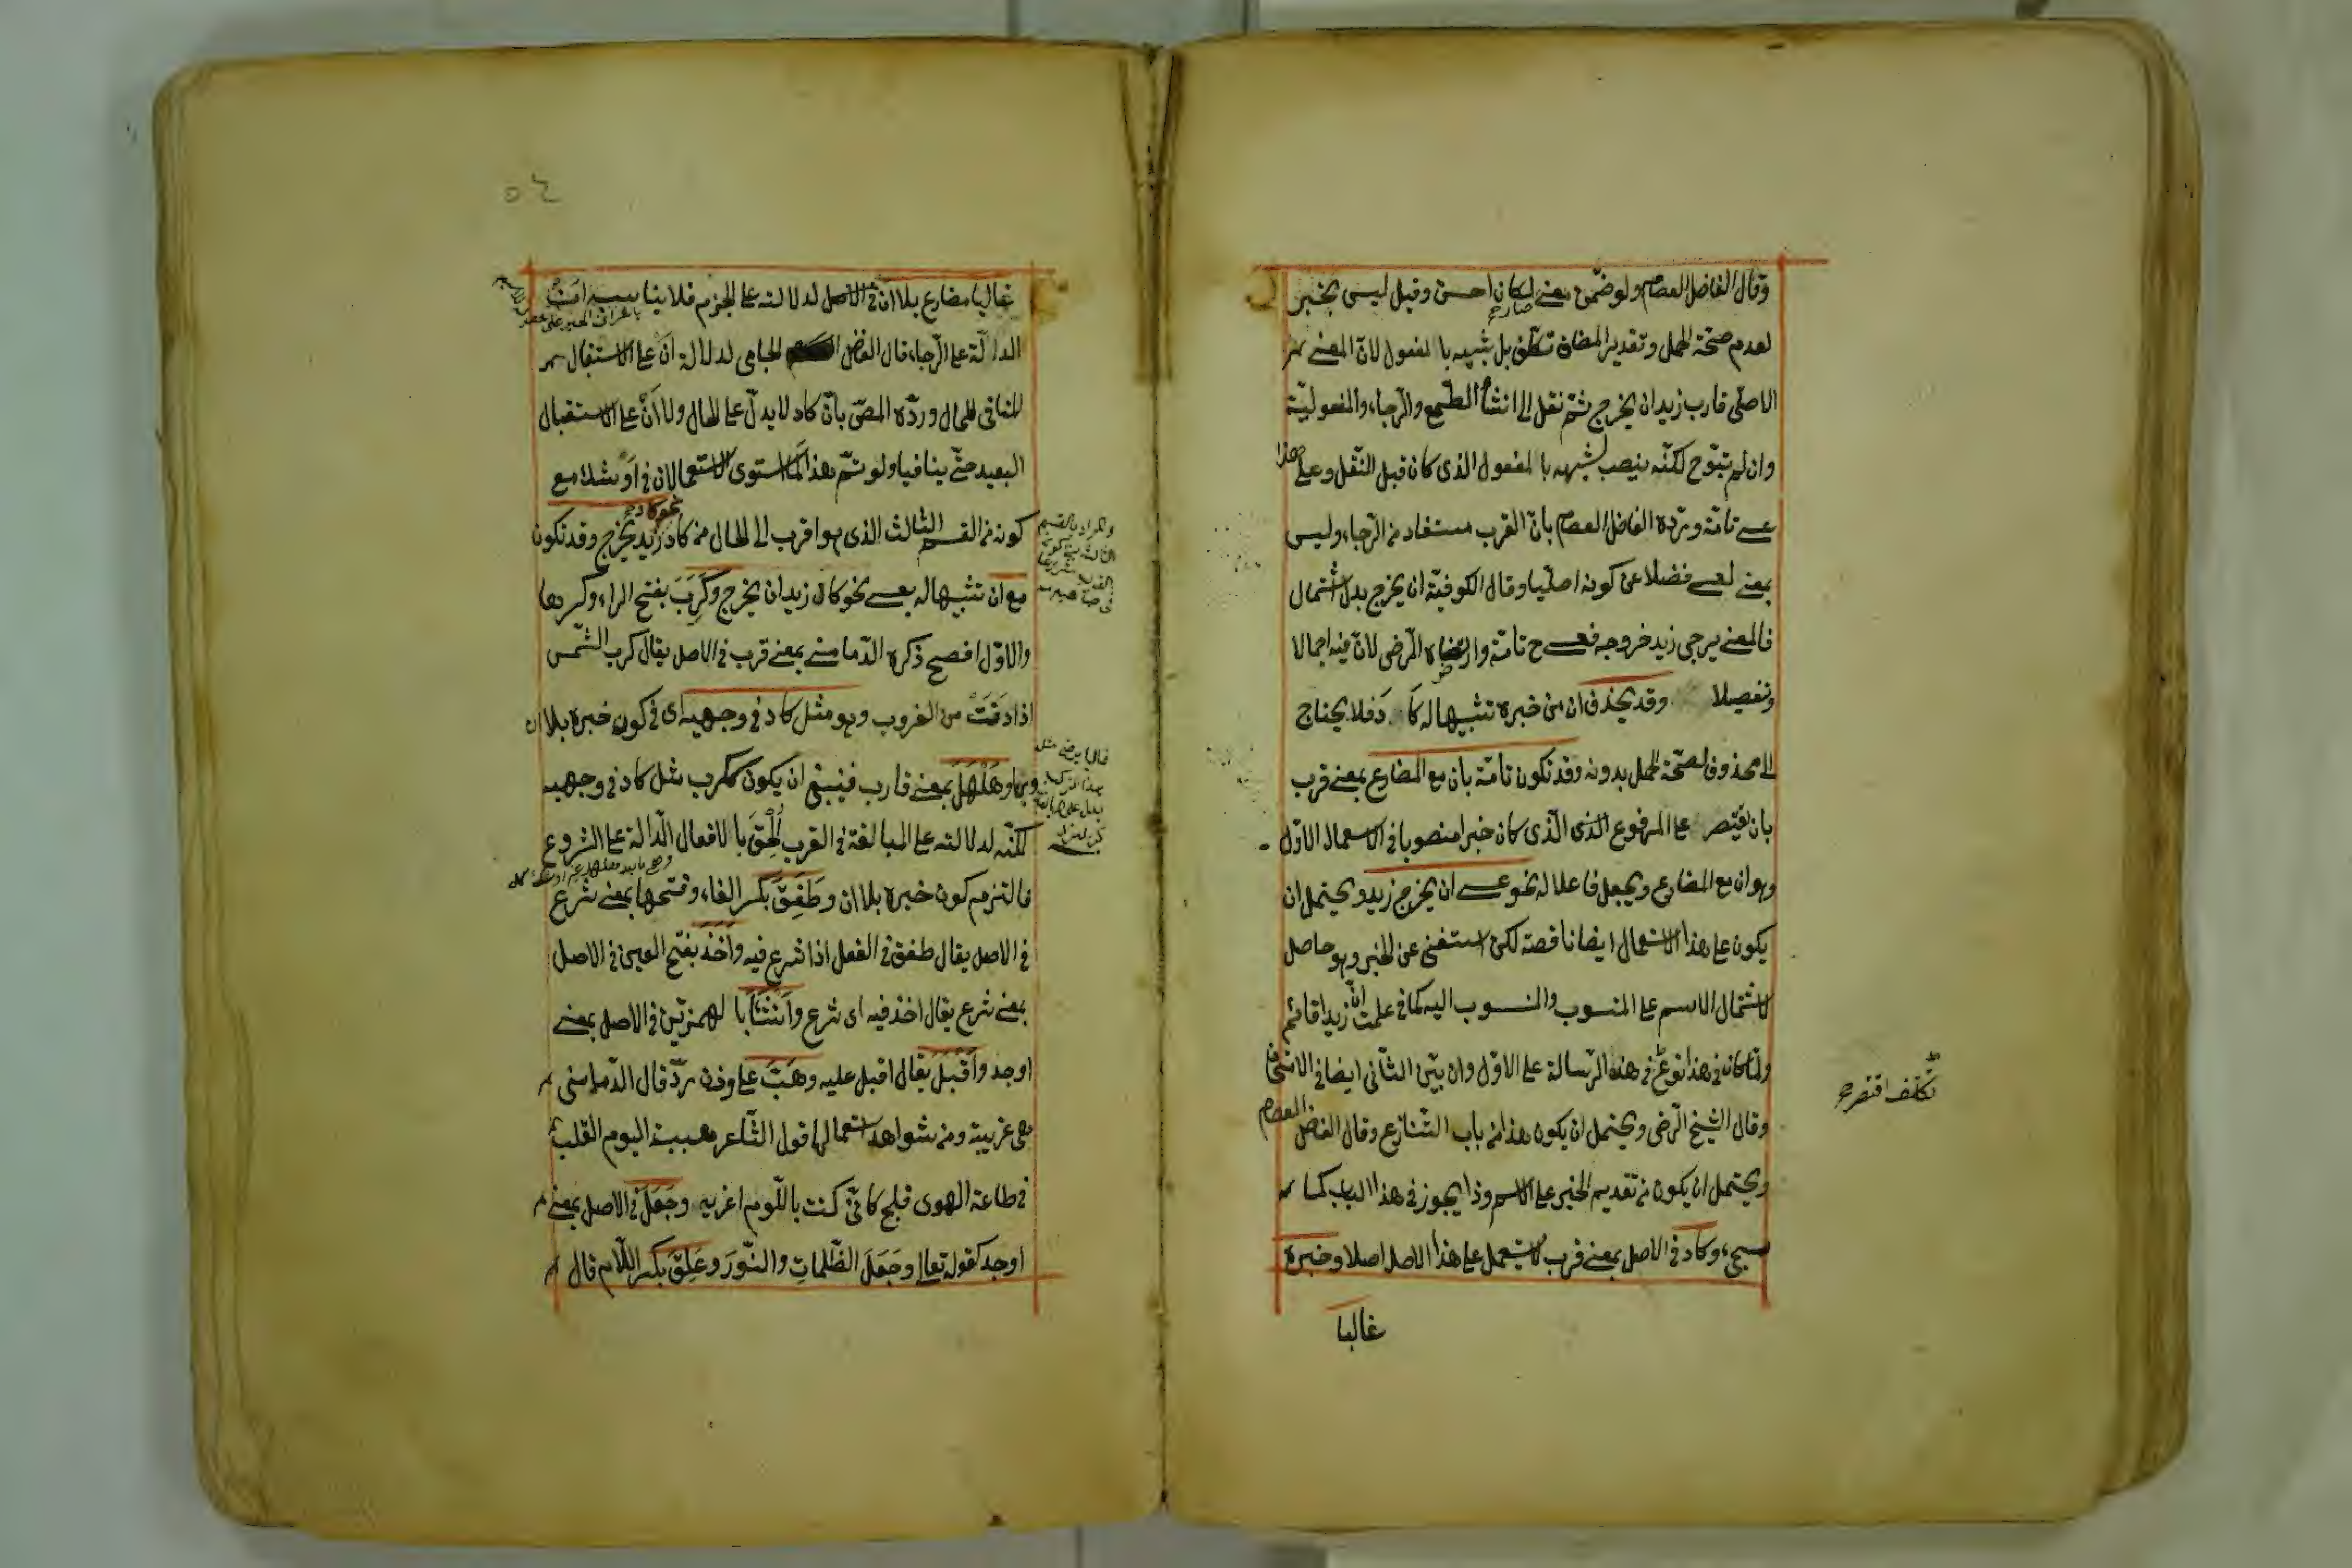 وقال الفاضل العصام ولو ضمن معنى لكان احسن وقيل ليس بخبر
صارح
لعدم صحة الحمل وتقدير المضاف تكلف بل شبيه بالمفعول لان المعنى
الاصلى قارب زيد ان يخرج ثم نقل الى انشاء الطمع والرجاء والمفعولية
وان لم تبق ح لكنه ينصب لشبهه بالمفعول الذى كان قبل النقل وعلى هذا
عسى تامة ويرده الفاضل العصام بان القرب مستفاد من الرجاء وليس
بمعنى لعسى فضلا عن كونه اصليا وقال الكوفية ان يخرج بدل اشتمال
فالمعنى يرجى زيد خروجه فعسى ح تامة وارتضاه الرضى لان فيه اجمالا
وتفصيلا وقد يحذف ان من خبره تشبيها له كاد فلا يحتاج
الى محذوف لصحة الحمل بدونه وقد تكون تامة بان مع المضارع بمعنى قرب
بان يقتصر على المرفوع الذى الذى كان خبرا منصوبا فى الاستعمال الاول
وهو ان مع المضارع ويجعل فاعلا له نحو عسى ان يخرج زيد ويحتمل ان
يكون على هذا الاستعمال ايضا ناقصة لكن استغنى عن الخبر وهو حاصل
لاشتمال الاسم على المنسوب والمنسوب اليه كما فى علمت ان زيدا قائم
ولما كان فى هذا نوع فى هذه الرسالة على الاول وان بين الثانى ايضا فى
تكلف اقتصر ح
وقال الشيخ الرضى ويحتمل ان يكون هذا من باب التنازع وقال الفاضل العصام
ويحتمل ان يكون من تقديم الخبر على الاسم وذا يجوز فى هذا الباب كما
سيجئ وكاد فى الاصل بمعنى قرب لا يستعمل على هذا الاصل اصلا وخبره
غالبا
٥٤
غالبا مضارع بلا ان فى الاصل لدلالته على الجزم فلا يناسبه ان
الدالة على الرجاء قال الفاضل الجامى لدلالة ان على الاستقبال
المنافى للحال ورده المص بان كاد لا يدل على الحال ولا ان على الاستقبال
البعيد حتى ينافيا ولو تم هذا لما استوى الاستعمالان فى اوشك مع
كونه من القسم الثالث الذى هو اقرب الى الحال من كاد نحو كاد زيد يخرج وقد تكون
مع ان تشبيها له بعسى نحو كاد زيد ان يخرج وكرب بفتح الراء وكسرها
والاول افصح ذكره الدمامينى بمعنى قرب فى الاصل يقال كرب الشمس
اذا دنت من الغروب وهو مثل كاد فى وجهيه اى فى كون خبره بلا ان
وبها وهلهل بمعنى قارب فينبغى ان يكون ككرب مثل كاد فى وجهيه
لكنه لدلالته على المبالغة فى القرب الحق بالافعال الدالة على الشروع
فالتزم كون خبره بلا ان وطفق بكسر الفاء وفتحها بمعنى شرع
فى الاصل يقال طفق فى الفعل اذا شرع فيه واخذ بفتح العين فى الاصل
بمعنى شرع يقال اخذ فيه اى شرع وانشأ بالهمزتين فى الاصل بمعنى
اوجد واقبل يقال اقبل عليه وهب على وزن رد قال الدمامينى
هى غريبة ومن شواهد استعمالها قول الشاعر هببت اليوم القلب
فى طاعة الهوى فلج كانى كنت باللوم اغريه وجعل فى الاصل بمعنى
اوجد كقوله تعالى وجعل الظلمات والنور وعلق بكسر اللام قال